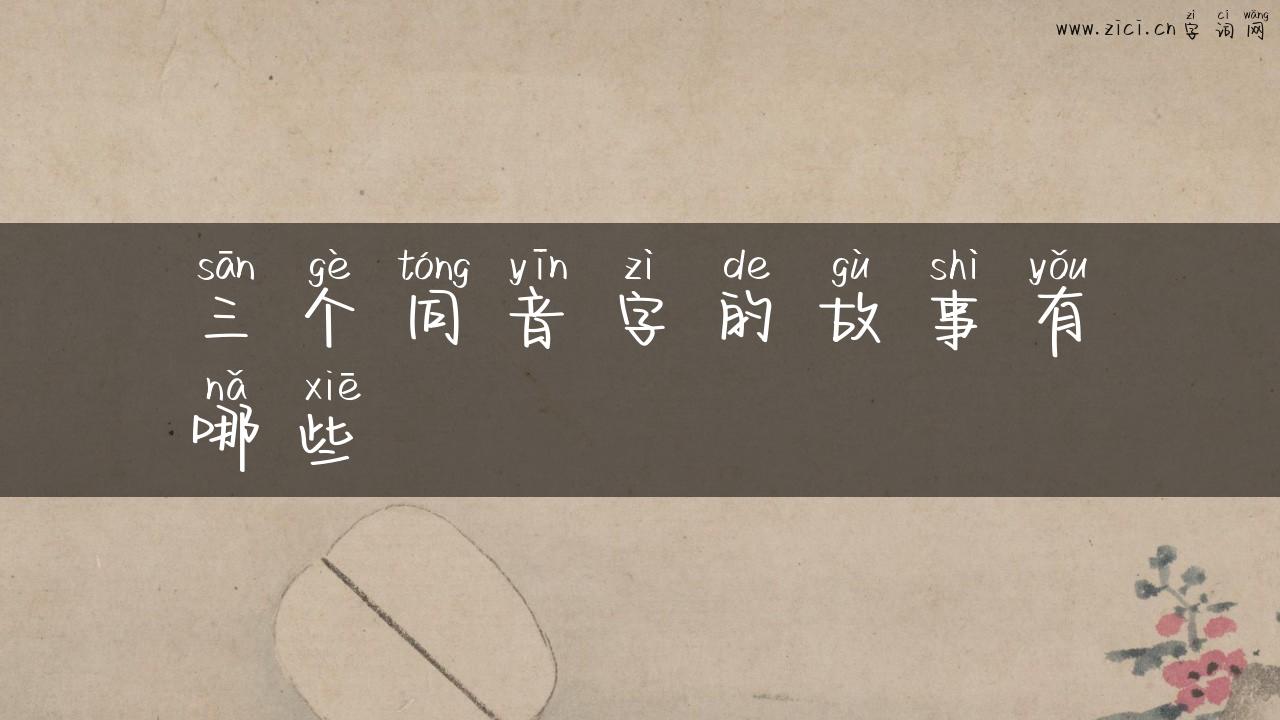 zì cí wǎng
www.zici.cn 字词网
sān gè tóng yīn zì de gù shì yǒu
三个同音字的故事有
nǎ xiē
哪些